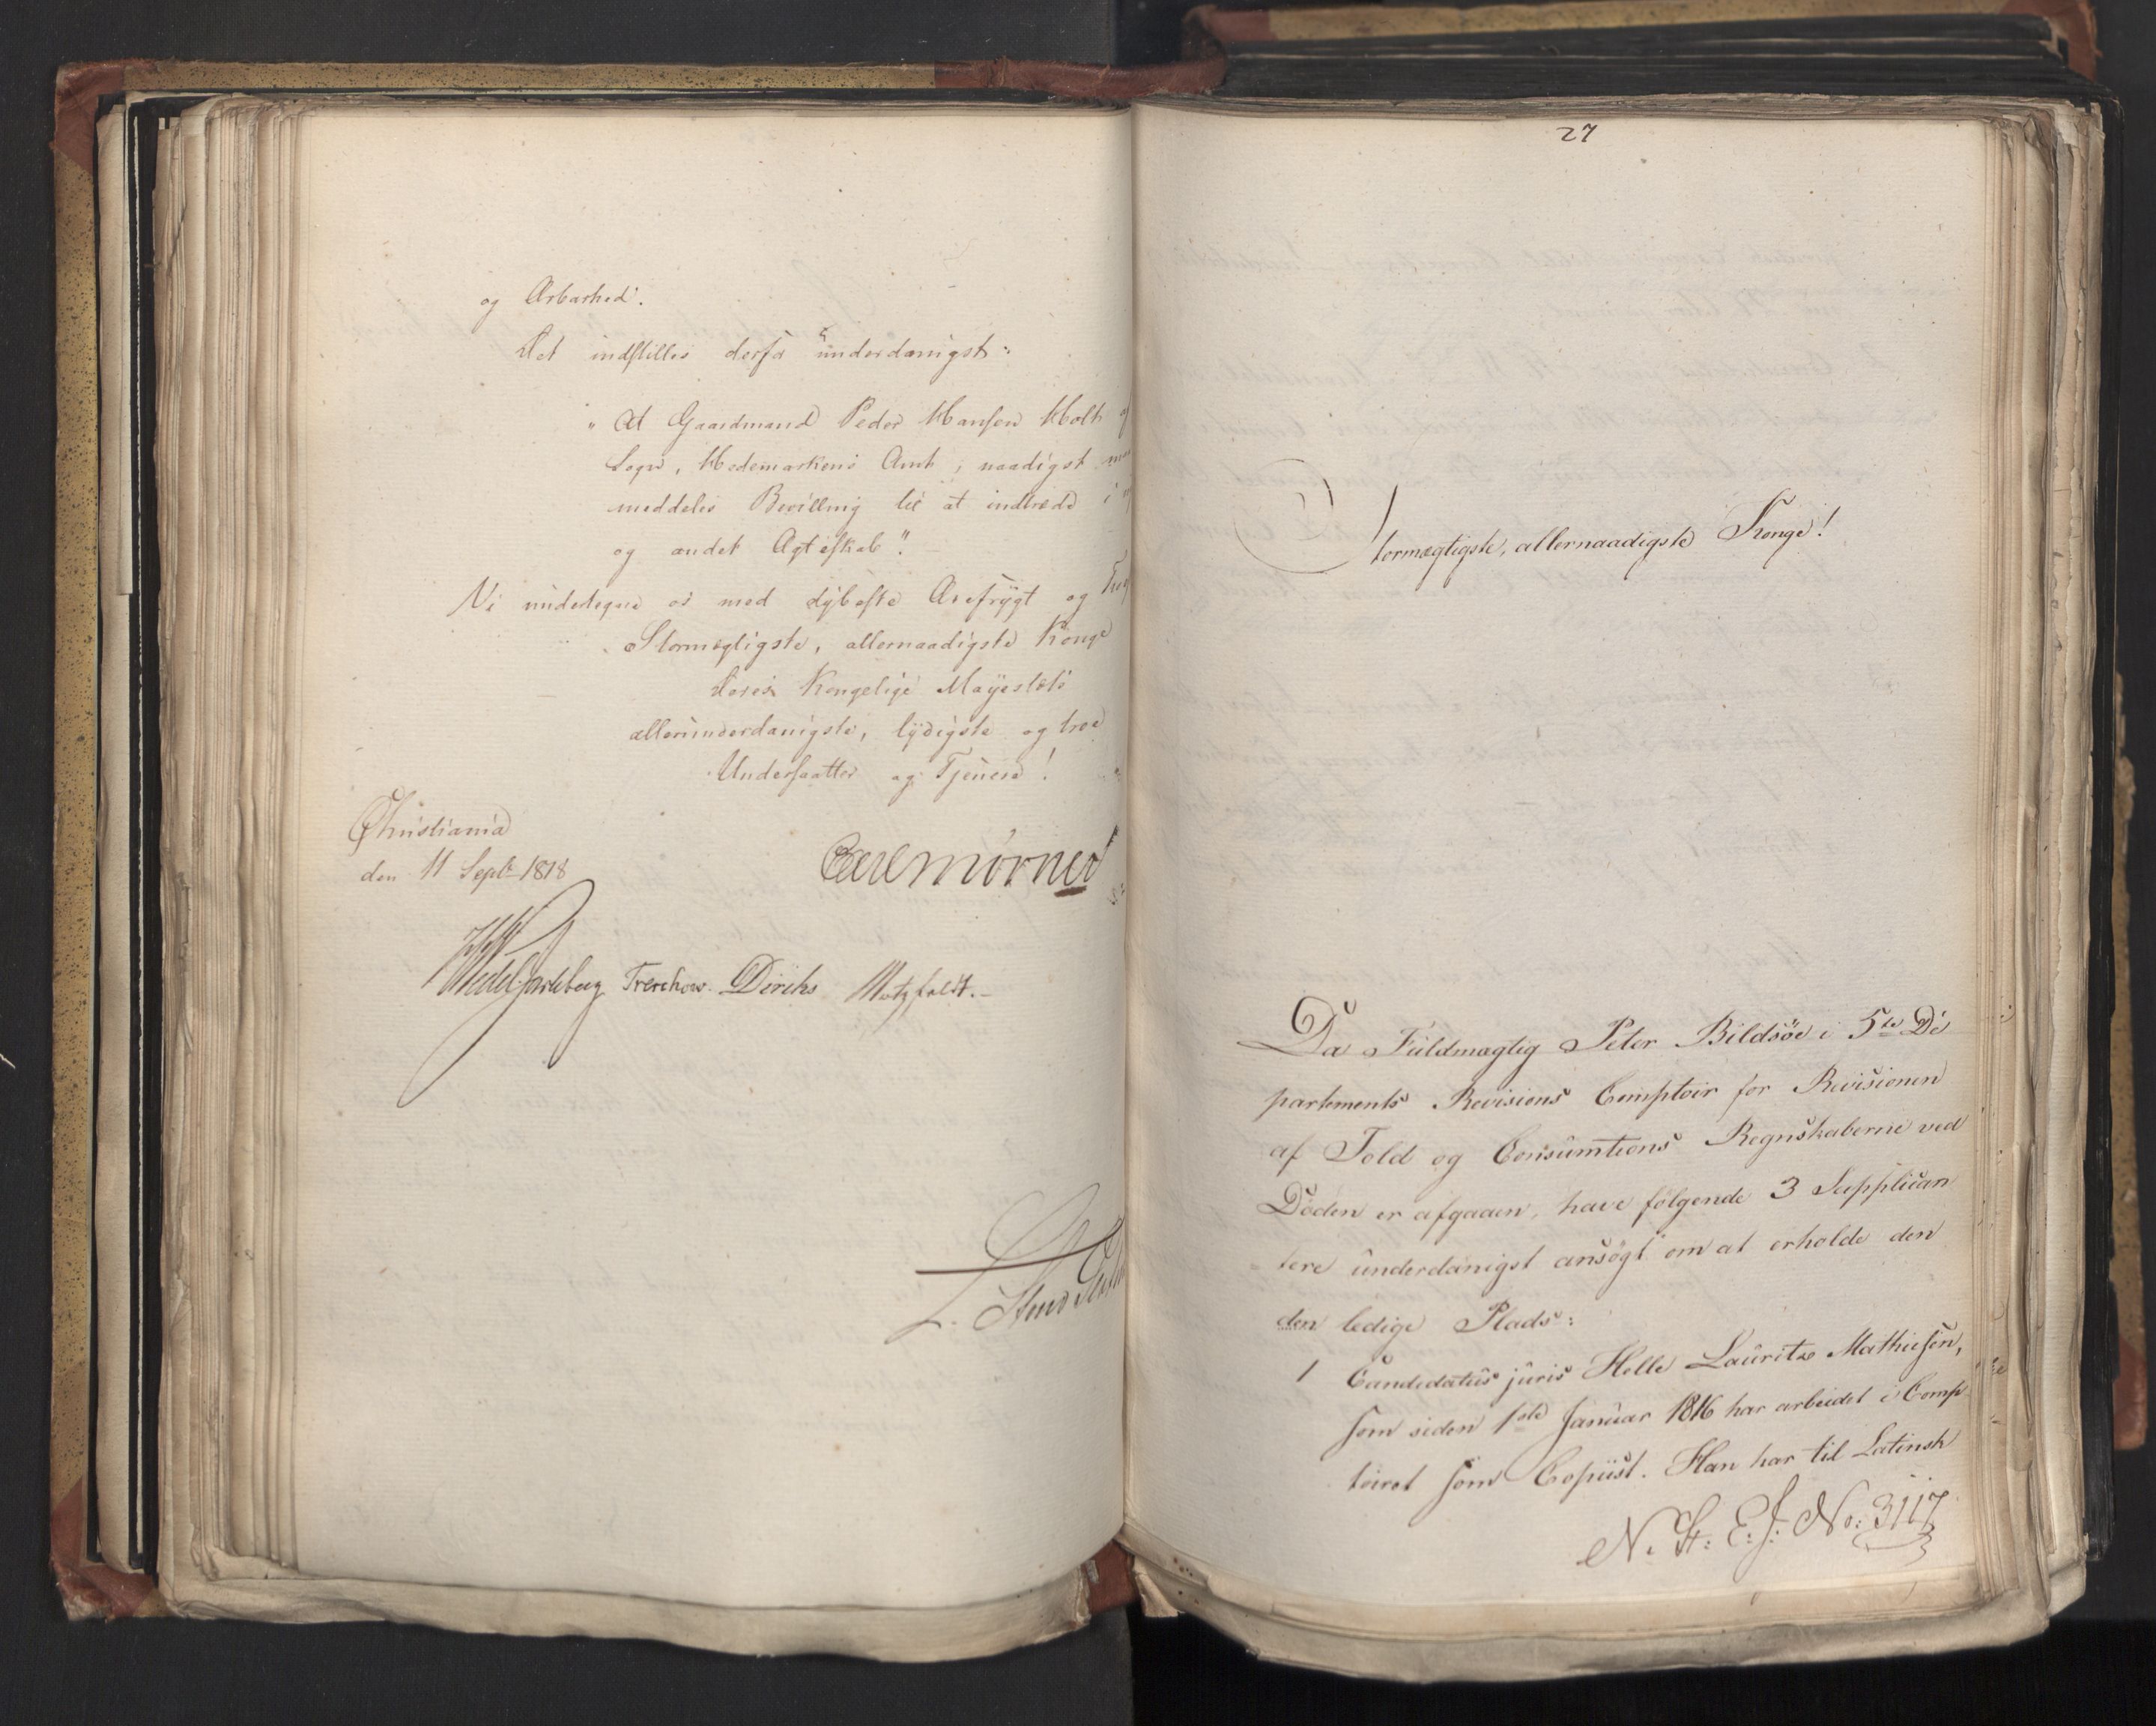 og Ærbarhed.
Det indstilles derfor underdanigst:
"At Gaardmand Peder Hansen Holt
Sogn, Hedemarkens Amt, naadigst
meddeles Bevilling til at indtræde i
og andet Ægteskab".
Vi undertegne os med dybeste Ærefrygt og
Stormægtigste, allernaadigste Konge
Deres Kongelige Mayestæts
allerunderdanigste, lydigste og troe
Undersaatter og Tjenere!
Christiania
den 11 Septr 1818
Carl Mörner
Wedel Jarlsberg Treschow. Diriks Motzfeldt.
27
Stormægtigste, allernaadigste Konge!
Da Fuldmægtig Peter Bildsöe i 5te De
partements Revisions Comptoir for Revisionen
af Told og Consumtions Regnskaberne ved
Döden er afgaaen, have fölgende 3 Supplican
tere underdanigst ansögt om at erholde den
den ledige Plads:
1 Candidatus juris Helle Lauritz Mathiesen,
som siden 1ste Januar 1816 har arbeidet i Comp
toiret som Copiist. Han har til Latinsk
N. St: E. J. No: 3117